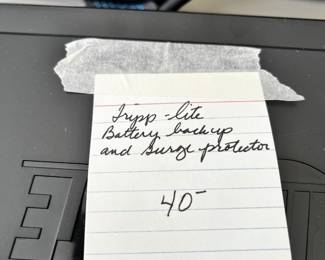 Tripp-lite
Battery backup
and surge protector
40-